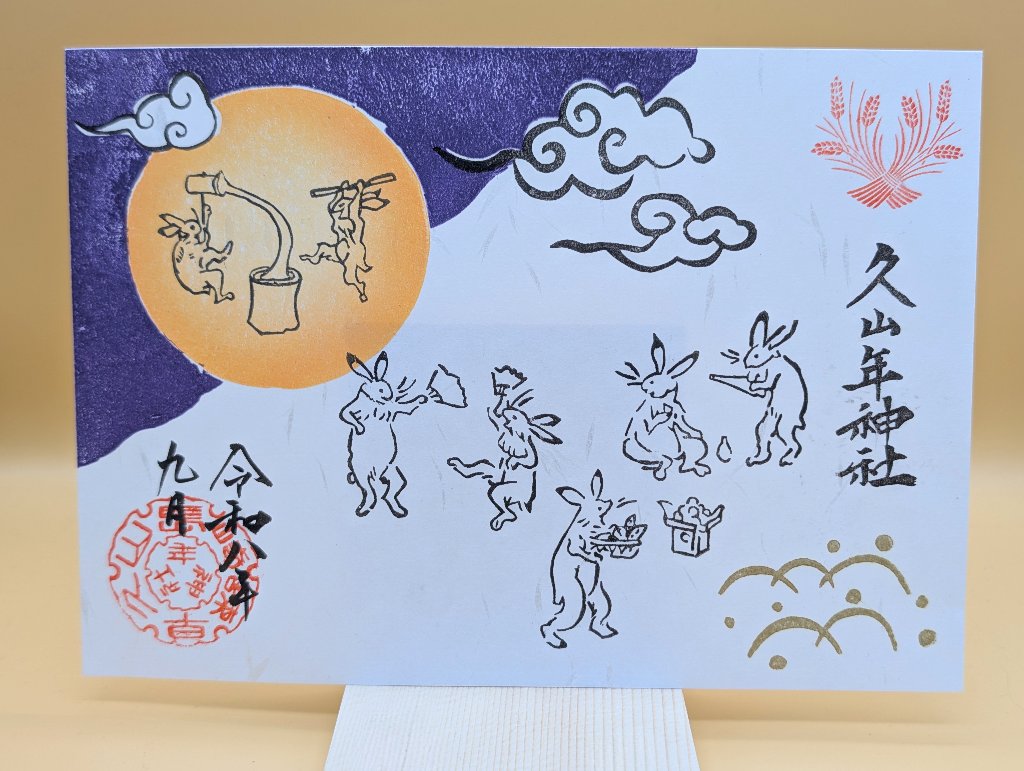 久山年神社
令和八年
九月